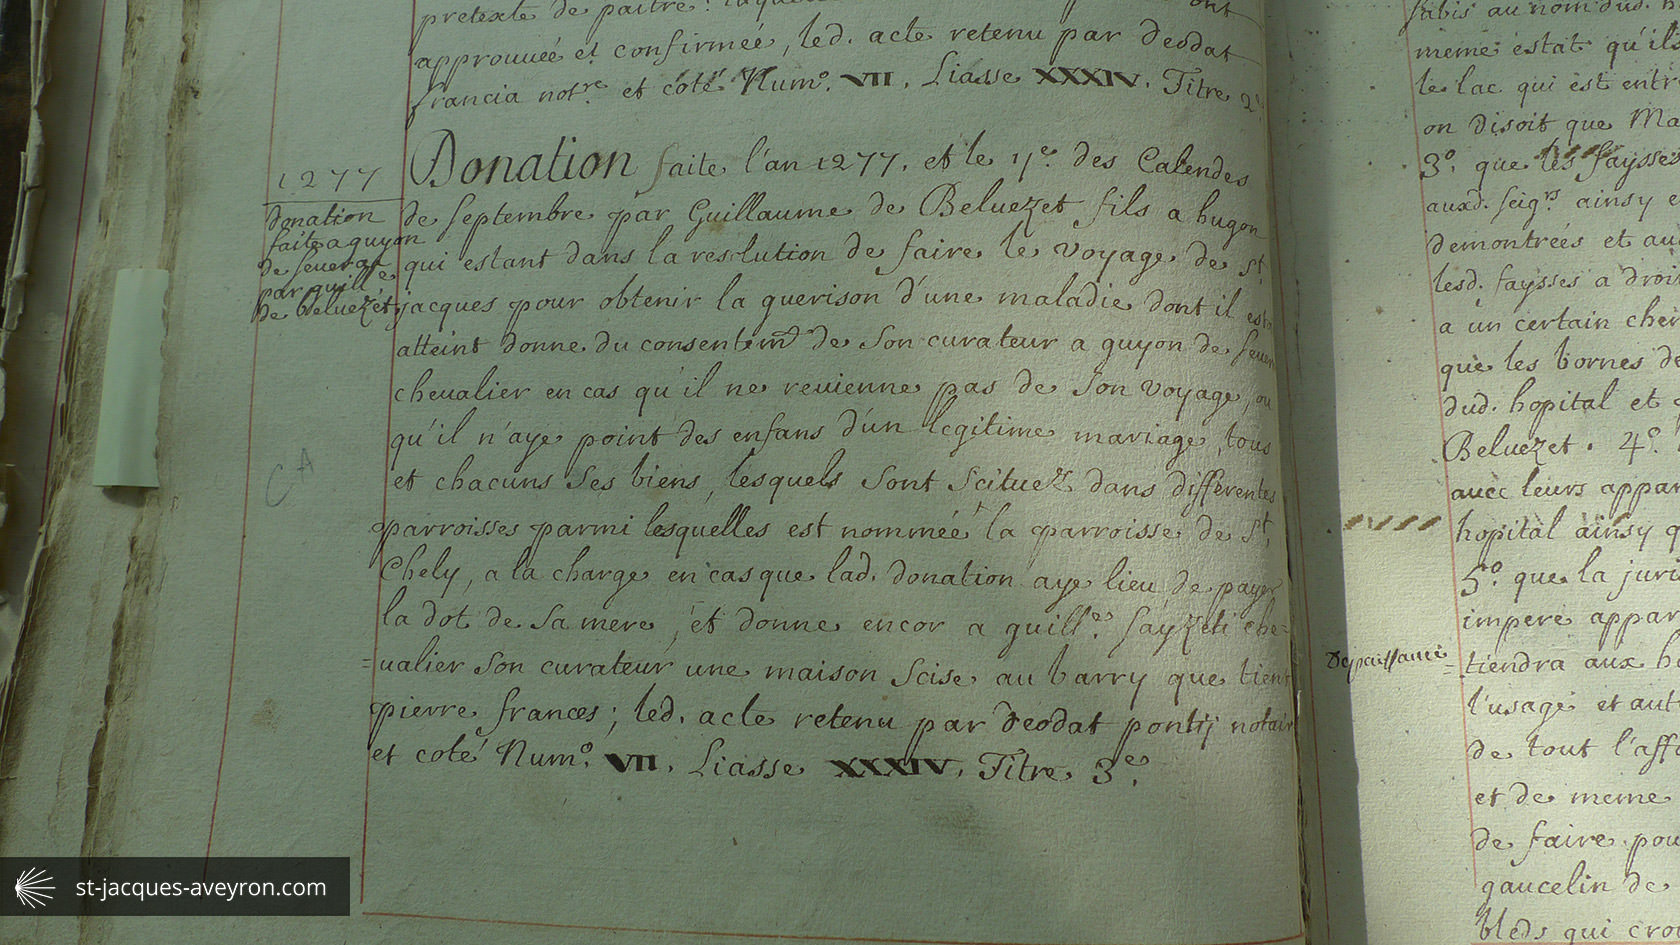 pretexte de paitre
ont
approuuée et confirmeé, led. acte retenu par deodat
francia not.re et côté Num.o VII. Liasse XXXIV. Titre 2
1277
donation
faite a guyon
de seuerac
par guill.e
de beluezet
Donation faite l'an 1277. et le 11e. des Calendes
de septembre par Guillaume de Beluezet fils a hugon
qui estant dans la resolution de faire le voyage de st
jacques pour obtenir la guerison d'une maladie dont il est
atteint donne du consentem.t de son curateur a guyon de
cheualier en cas qu'il ne reuienne pas de son voyage, ou
qu'il n'aye point des enfans d'un legitime mariage, tous
et chacuns ses biens, lesquels sont scituez dans differentes
parroisses parmi lesquelles est nommeé la parroisse de st.
Chely, a la charge en cas que lad. donation aye lieu de payer
la dot de sa mere, et donne encor a guill.e sayzeti che=
=ualier son curateur une maison scise au barry que tient
pierre frances; led. acte retenu par deodat pontij notair
et coté Num.o VII. Liasse XXXIV. Titre 3e.
CA
au nom dud. h
meme estat qu'ils
le lac qui est entr
on disoit que Ma
3.o que les faysses
auxd. seig.rs ainsy e
demontrées et au
lesd. faysses a droi
a un certain che
que les bornes de
dud. hopital et
Beluezet. 4.o
auec leurs appar
hopital ainsy q
5.o que la juri
impere appar
Depaissance
=tiendra aux h
l'usage et aut
de tout l'affa
et de meme
de faire pou
gaucelin de
bleds qui cro
st-jacques-aveyron.com